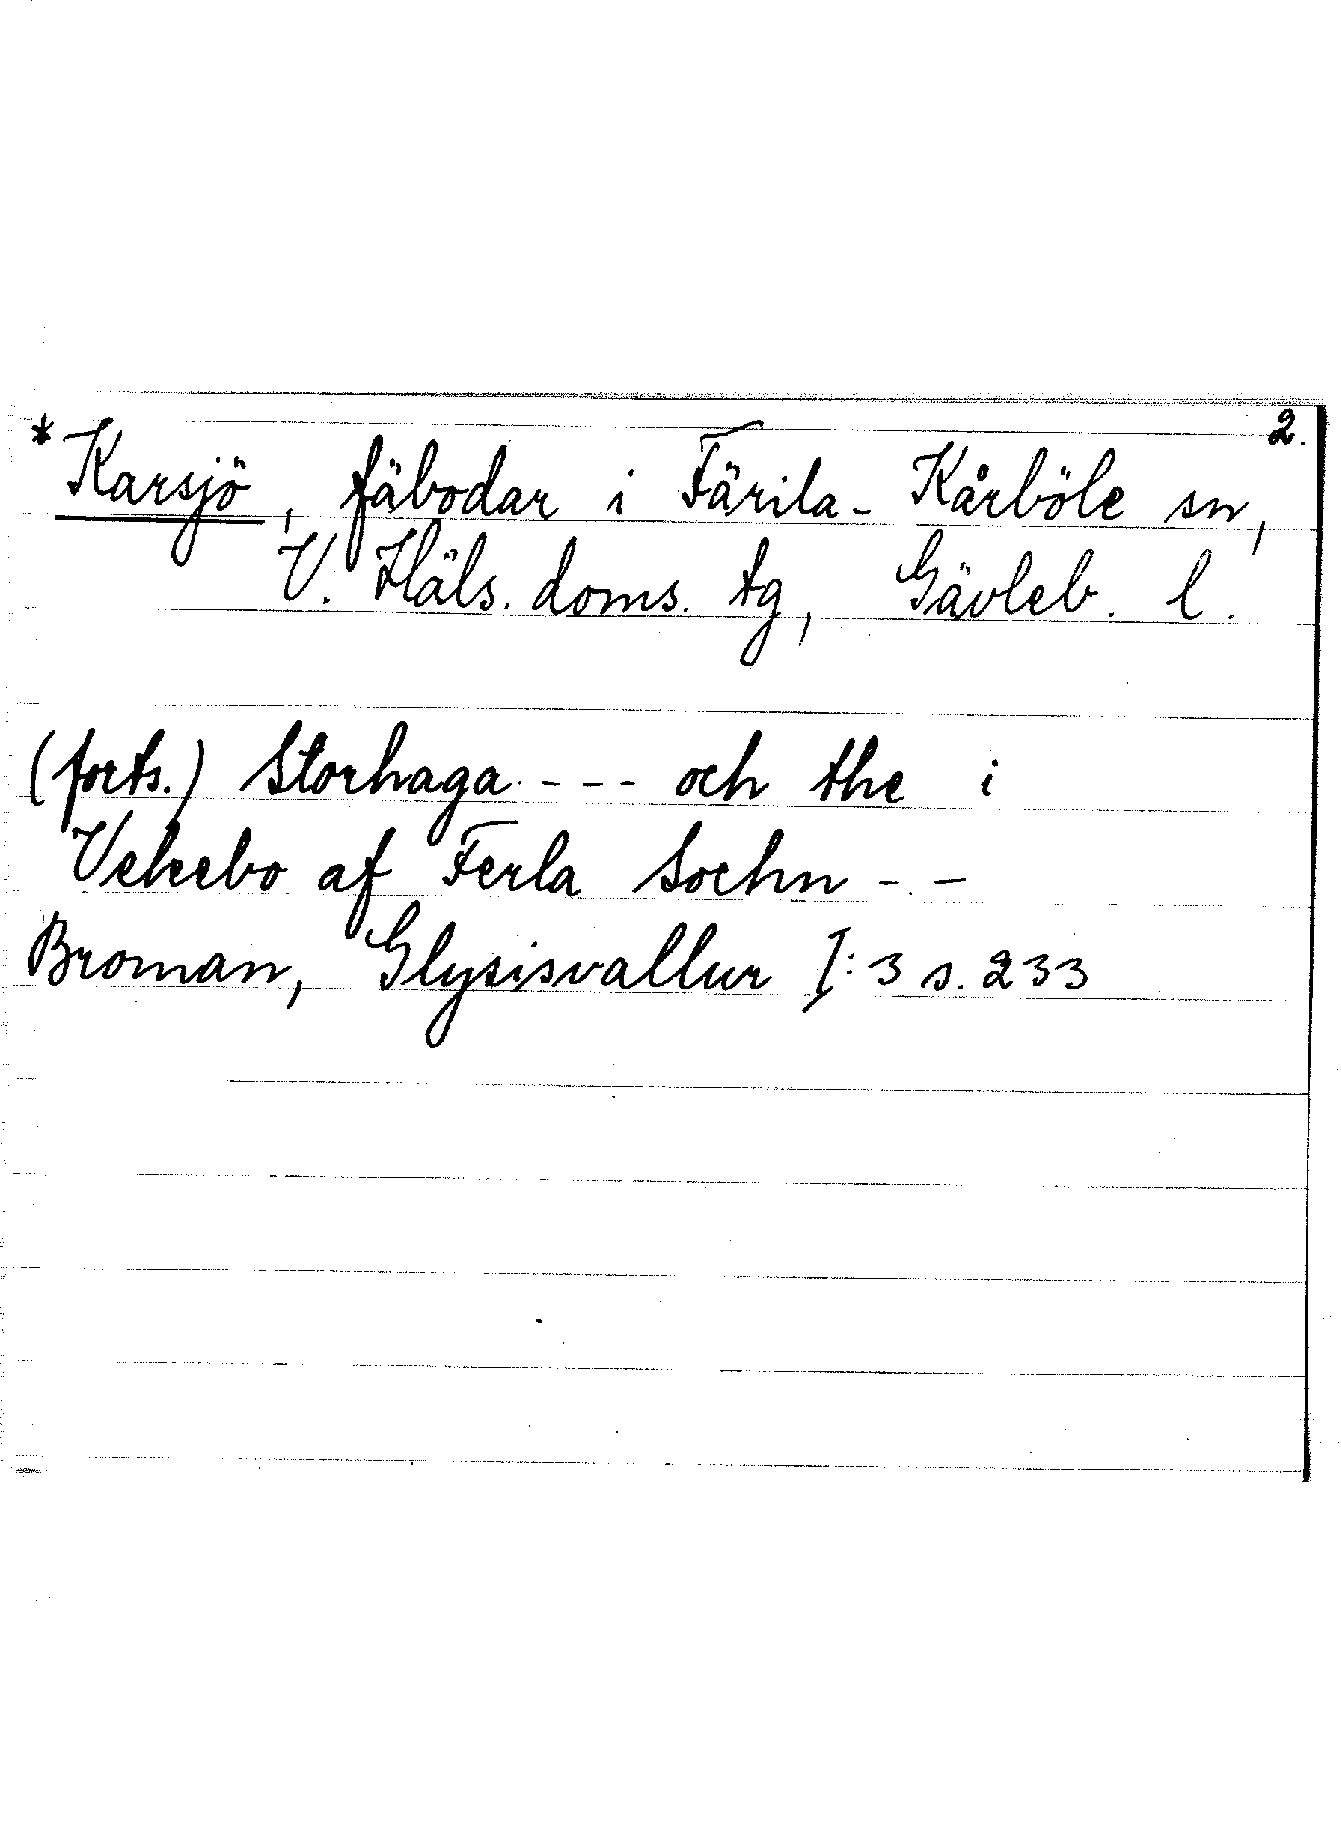 2.
*Karsjö, fäbodar i Färila-Kårböle sn,
V. Häls. doms. tg, Gävleb. l.
(forts.) Storhaga - - - och the i
Vekebo af Ferla Sochn - - -
Broman, Glysisvallur I:3 s. 233